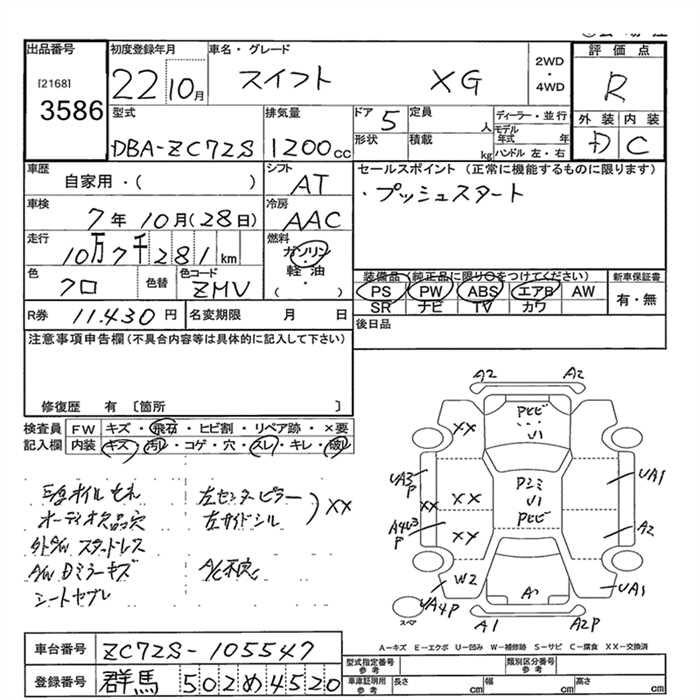 出品番号
[2168]
3586
初度登録年月
22 10月
車名・グレード
スイフト XG
2WD
・
4WD
評価点
R
外装 内装
D C
型式
DBA-ZC72S
排気量
1200cc
ドア 5
形状
定員 人
積載 kg
ディーラー・並行
モデル年式 年
ハンドル 左・右
車歴
自家用・( )
シフト
AT
セールスポイント (正常に機能するものに限ります)
・プッシュスタート
車検
7年10月(28日)
冷房
AAC
走行
10万7千281km
燃料
ガソリン
・
軽油
・
( )
色
クロ
色替
色コード
ZMV
装備品(純正品に限り○をつけてください)
PS PW ABS エアB AW
SR ナビ TV カワ
新車保証書
有・無
R券 11.430円
名変期限 月 日
後日品
注意事項申告欄(不具合内容等は具体的に記入して下さい)
修復歴 有 〔箇所 〕
検査員記入欄
FW キズ・飛石・ヒビ割・リペア跡・×要
内装 キズ・汚レ・コゲ・穴・スレ・キレ・破レ
オーディオ欠品穴
シートヤブレ
左センターピラー
左サイドシル
XX
A/C不良
A2 A2
Pヒビ
XX
UA3P
UA1
XX XX
A4U3P
XX
A2
Pヒビ
W2
UA4P
UA1
スペア
A1 A2P
A-キズ E-エクボ U-凹み W-補修跡 S-サビ C-腐食 XX-交換済
車台番号 ZC72S-105547
登録番号 群馬 502 め 4520
型式指定番号 参考
類別区分番号 参考
車庫証明用 参考
長さ cm
幅 cm
高さ cm